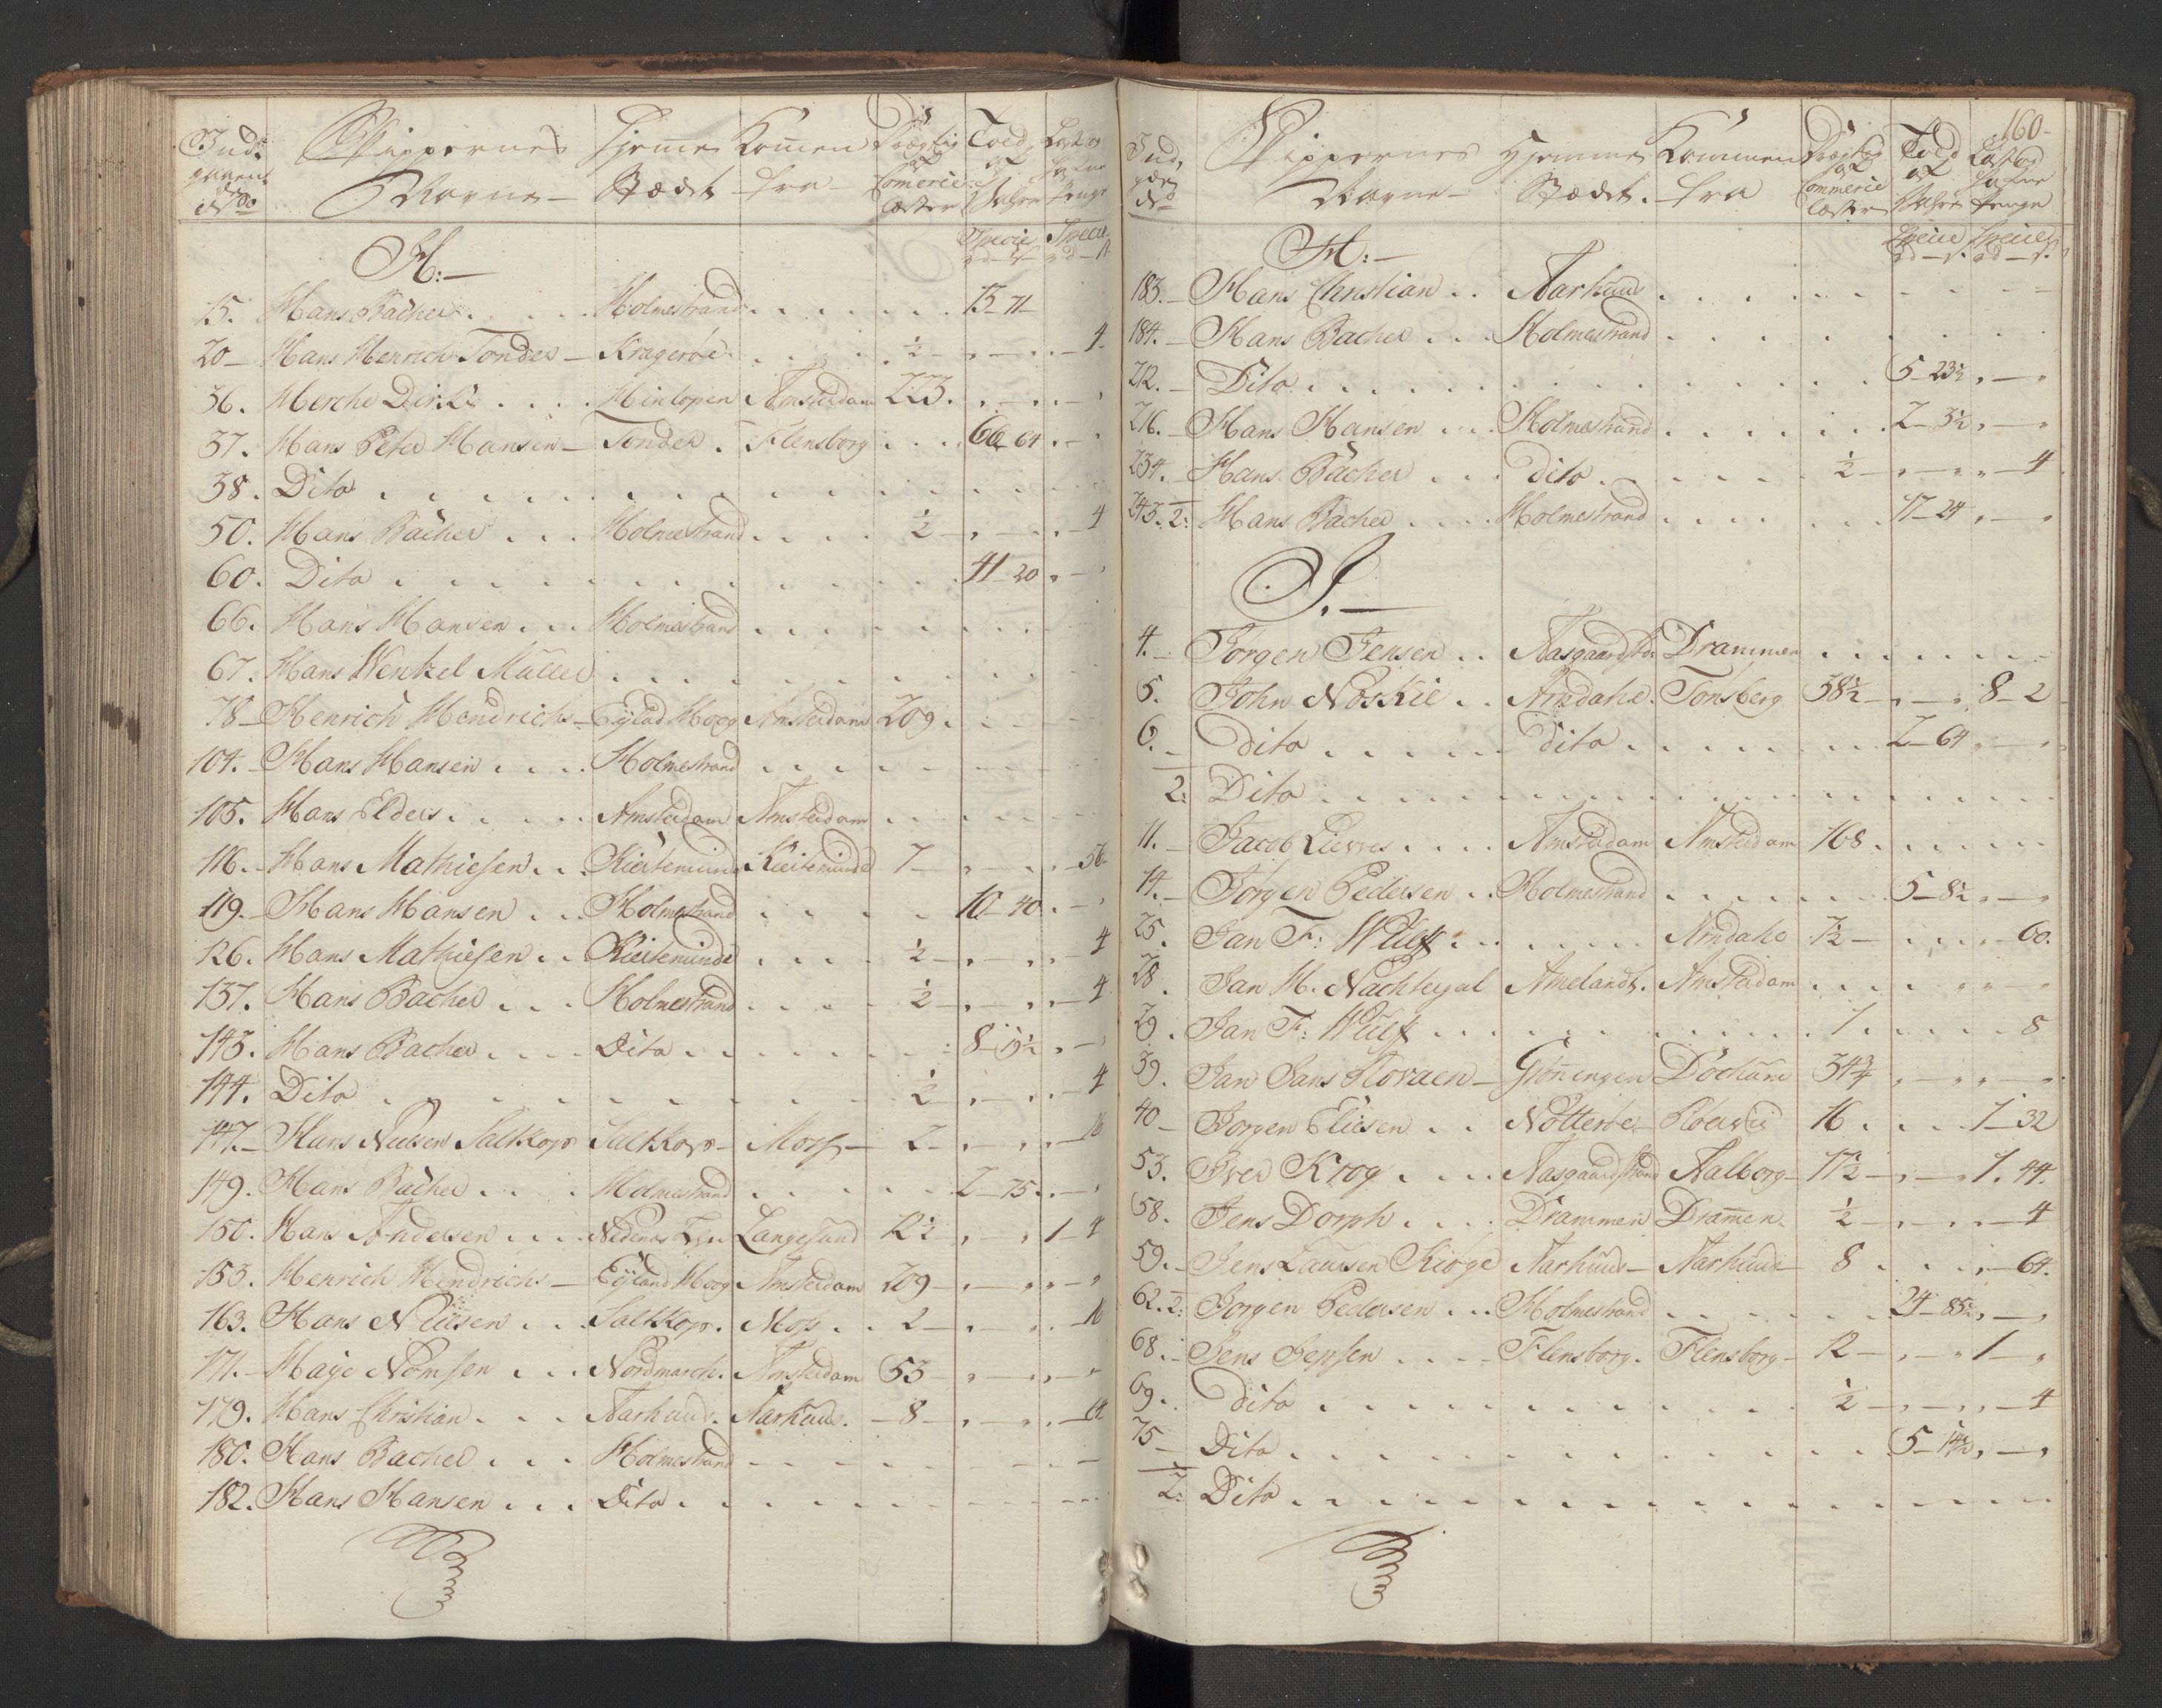 Skippernes Hjemme Kommen Told
Navne Stædt fra af
Specie Specie
H:
15. Hans Bacher Holmestrand 13-71
20 Hans Henrich Tonder Kragerøe ½ 4
36. Herche Dirks Hinlopen Amsterdam 223.
37. Hans Peter Hansen Tonder Flensborg 66 64
38. Dito
50. Hans Bacher Holmestrand ½ 4
60. Dito 41 20
66. Hans Hansen Holmestrand
67. Hans Wenkel Müller
78 Henrich Hendrichs Eyland Hoog Amsterdam 209
104. Hans Hansen Holmestrand
105. Hans Elders Amsterdam Amsterdam
116. Hans Mathiesen Kiertemunde Kiertemunde 7 56
119. Hans Hansen Holmestrand 10-40
126. Hans Mathiesen Kiertemunde ½ 4
137. Hans Bacher Holmestrand ½ 4
143. Hans Bacher Dito 8-19½
144. Dito ½ 4
147. Hans Nielsen Saltkop Saltkop Moss 2 16
149. Hans Bacher Holmestrand 2-75
150. Hans Andersen Nedenes Langesund 12½ 1-4
153. Henrich Hendrichs Eyland Hoog Amsterdam 209
163. Hans Nilsen Saltkop. Moss 2 16
171. Haye Nomsen Nordmarch. Amsterdam 53
179. Hans Christian Aarhuus. Aarhuus. 8 64
180. Hans Bacher Holmestrand
182. Hans Hansen Dito
160
Skippernes Hjemme Kommen Told
Navne Stædt. fra af
H:
183. Hans Christian Aarhuus
184. Hans Bacher Holmestrand
212. Dito 5-23½
216. Hans Hansen Holmestrand 2-3½
234. Hans Bacher Dito ½ 4
243. 2: Hans Bacher Holmestrand 17-24
I.
4. Jørgen Jensen Aasgaardstr: Drammen
5. John Noskie Arndahl. Tonsberg 38½ 8-2
6. Dito Dito 2-64
2: Dito
11. Jacob Lieves Amsterdam Amsterdam 168
14. Jørgen Pedersen Holmestrand 5-8½
25. Jan F: Wulff Arndahl 7½ 60.
28. Jan H. Nachtegal Amelandt. Amsterdam
29. Jan F: Wulff 1 8
39. Jan Jans Slovaen Gröningen Dockum 34¾
40 Jørgen Eliesen Nötteröe 16 1-32
53. Iver Krog Aasgaardstrand Aalborg 17½ 1. 44.
58. Jens Dorph Drammen Dramen. ½ 4
59. Jens Laursen Kiöge Aarhuus Aarhuus 8 64.
62. 2: Jørgen Pedersen Holmestrand 24-85½
68. Jens Jepsen Flensborg. Flensborg 12 1
69. Dito ½ 4
75 Dito 5-14½
2: Dito